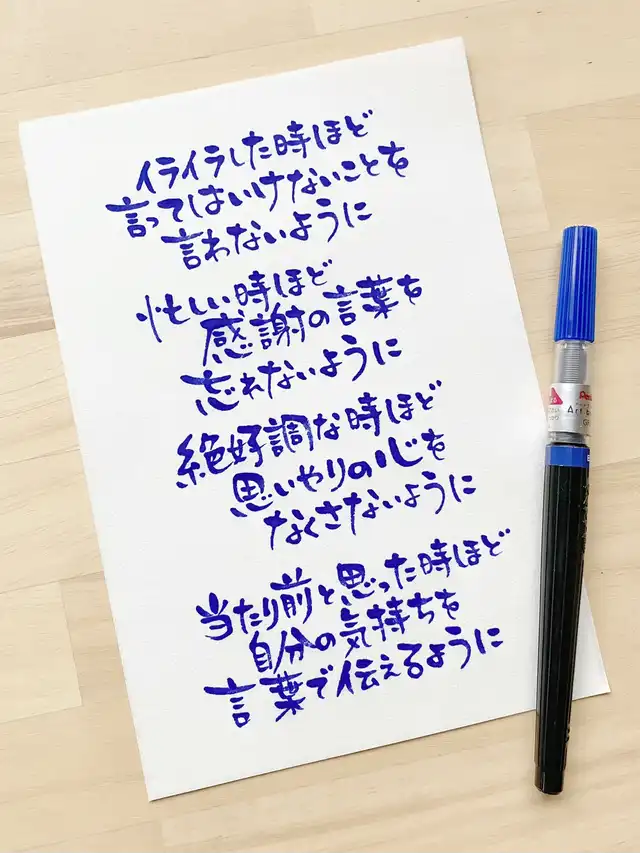 イライラした時ほど
言ってはいけないことを
言わないように
忙しい時ほど
感謝の言葉を
忘れないように
絶好調な時ほど
思いやりの心を
なくさないように
当たり前と思った時ほど
自分の気持ちを
言葉で伝えるように
Art